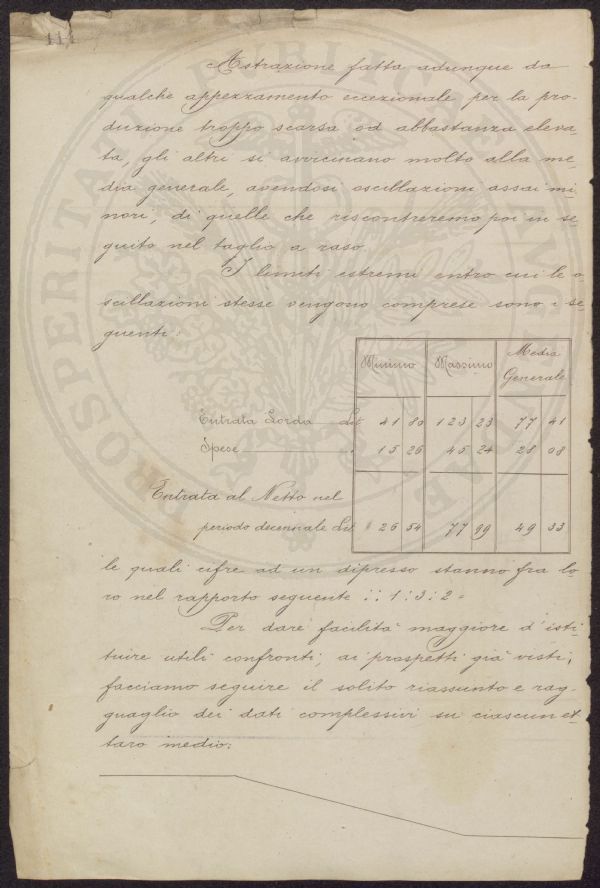 114
Astrazione fatta adunque da
qualche appezzamento eccezionale per la pro-
duzione troppo scarsa od abbastanza eleva-
ta, gli altri si avvicinano molto alla me-
dia generale, avendosi oscillazioni assai mi-
nori, di quelle che riscontreremo poi in se-
guito nel taglio a raso.
I limiti estremi entro cui le o-
scillazioni stesse vengono comprese sono i se-
guenti:
Minimo Massimo Media Generale
Entrata Lorda Lit 41 80 123 23 77 41
Spese " 15 26 45 24 28 08
Entrata al Netto nel
periodo decennale Lit 26 54 77 99 49 33
le quali cifre ad un dipresso stanno fra lo-
ro nel rapporto seguente :: 1:3:2=
Per dare facilità maggiore d'isti-
tuire utili confronti, ai prospetti già visti,
facciamo seguire il solito riassunto e rag-
guaglio dei dati complessivi su ciascun et-
taro medio:
PROSPERITATI PUBLICAE AUGENDAE